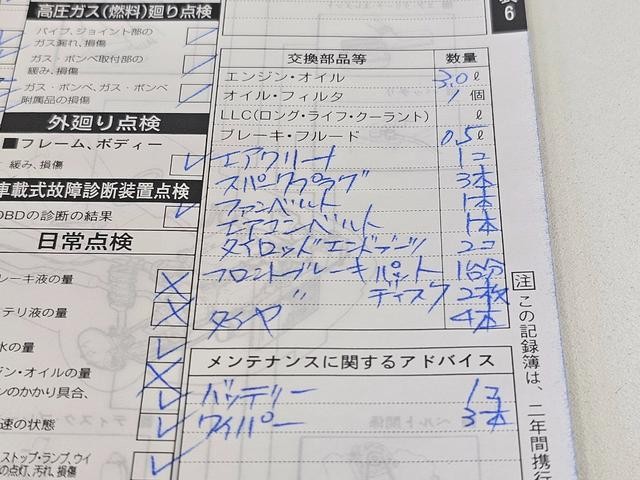 高圧ガス(燃料)廻り点検
パイプ、ジョイント部の
ガス漏れ、損傷
ガス・ボンベ取付部の
緩み、損傷
ガス・ボンベ、ガス・ボンベ
附属品の損傷
外廻り点検
■フレーム、ボディー
緩み、損傷
車載式故障診断装置点検
OBDの診断の結果
日常点検
レーキ液の量
テリ液の量
水の量
ジン・オイルの量
ンのかかり具合、
速の状態
ストップ・ランプ、ウイ
の点灯、汚れ、損傷
6
交換部品等 数量
エンジン・オイル 3.0ℓ
オイル・フィルタ 1個
LLC(ロング・ライフ・クーラント) ℓ
ブレーキ・フルード 0.5ℓ
エアクリーナ 1コ
スパークプラグ 3本
ファンベルト 1本
エアコンベルト 1本
タイロッドエンドブーツ 2コ
フロントブレーキパット 1台分
〃 ディスク 2枚
タイヤ 4本
メンテナンスに関するアドバイス
バッテリー 1コ
ワイパー 3本
注 この記録簿は、二年間携行